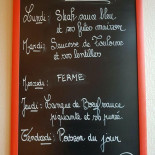 Lundi : Steak sauce bleu
et ses frites maison
Mardi : Saucisse de Toulouse
et ses lentilles
Mercredi : FERMÉ
Jeudi : Langue de Bœuf sauce
piquante et sa purée
Vendredi : Poisson du jour